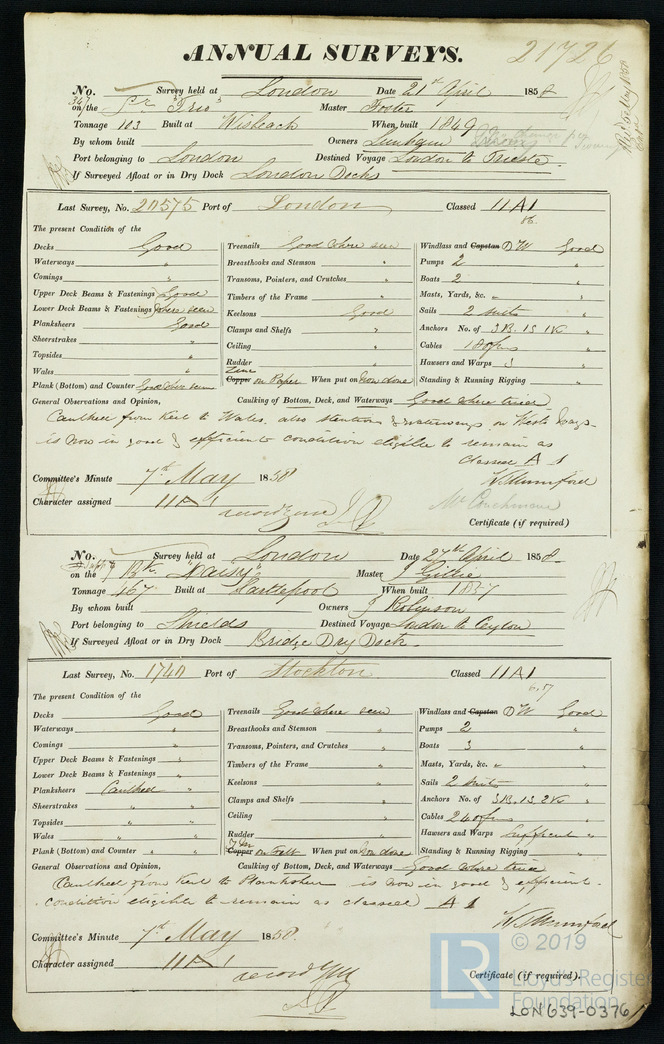 ANNUAL SURVEYS.
21726
No. Survey held at London Date 21st April 1858
347 on the Sr "Trio" Master Foster
Tonnage 103 Built at Wisbeach When built 1849
By whom built Owners
Port belonging to London Destined Voyage London to Trieste
If Surveyed Afloat or in Dry Dock London Docks
Last Survey, No. 20575 Port of London Classed 11A1
The present Condition of the
Decks Good
Waterways "
Comings "
Upper Deck Beams & Fastenings Good
Lower Deck Beams & Fastenings where seen
Planksheers Good
Sheerstrakes "
Topsides "
Wales "
Plank (Bottom) and Counter Good where seen
Treenails Good where seen
Breasthooks and Stemson "
Transoms, Pointers, and Crutches "
Timbers of the Frame "
Keelsons Good
Clamps and Shelfs "
Ceiling "
Rudder "
Zinc
Copper on Paper When put on Now done
Windlass and Capstan DW Good
Pumps 2 "
Boats 2 "
Masts, Yards, &c. " "
Sails 2 suits "
Anchors No. of 3B. 1S 1K "
Cables 180 fms "
Hawsers and Warps 3 "
Standing & Running Rigging "
General Observations and Opinion, Caulking of Bottom, Deck, and Waterways Good where tried
Caulked from Keel to Wales, also stantions & waterways on
is now in good & efficient condition eligible to remain as
classed A 1
W S Mumford
Committee's Minute 7th May 1858
Character assigned 11A1
record zinc
Mr Couchman
Certificate (if required)
No. Survey held at London Date 27th April 1858.
on the Bk. "Daisy" Master J Gillie
Tonnage 467 Built at Hartlepool When built 1857
By whom built Owners J Robinson
Port belonging to Shields Destined Voyage London to Ceylon
If Surveyed Afloat or in Dry Dock Bridge Dry Dock
Last Survey, No. 1740 Port of Stockton Classed 11A1
The present Condition of the
Decks Good
Waterways "
Comings "
Upper Deck Beams & Fastenings "
Lower Deck Beams & Fastenings "
Planksheers Caulked "
Sheerstrakes " "
Topsides " "
Wales " "
Plank (Bottom) and Counter " "
Treenails Good where seen
Breasthooks and Stemson "
Transoms, Pointers, and Crutches "
Timbers of the Frame "
Keelsons "
Clamps and Shelfs "
Ceiling "
Rudder "
Copper on Felt When put on Now done
Windlass and Capstan DW Good
Pumps 2 "
Boats 3 "
Masts, Yards, &c. " "
Sails 2 suits "
Anchors No. of 3B. 1S. 2K "
Cables 240 fms "
Hawsers and Warps Sufficient "
Standing & Running Rigging "
General Observations and Opinion, Caulking of Bottom, Deck, and Waterways Good where tried
Caulked from Keel to Planksheer is now in good & efficient
condition eligible to remain as classed A 1
W S Mumford
Committee's Minute 7th May 1858.
Character assigned 11A1
record YM
Certificate (if required).
LR © 2019
Lloyd's Register
Foundation
LON639-0376